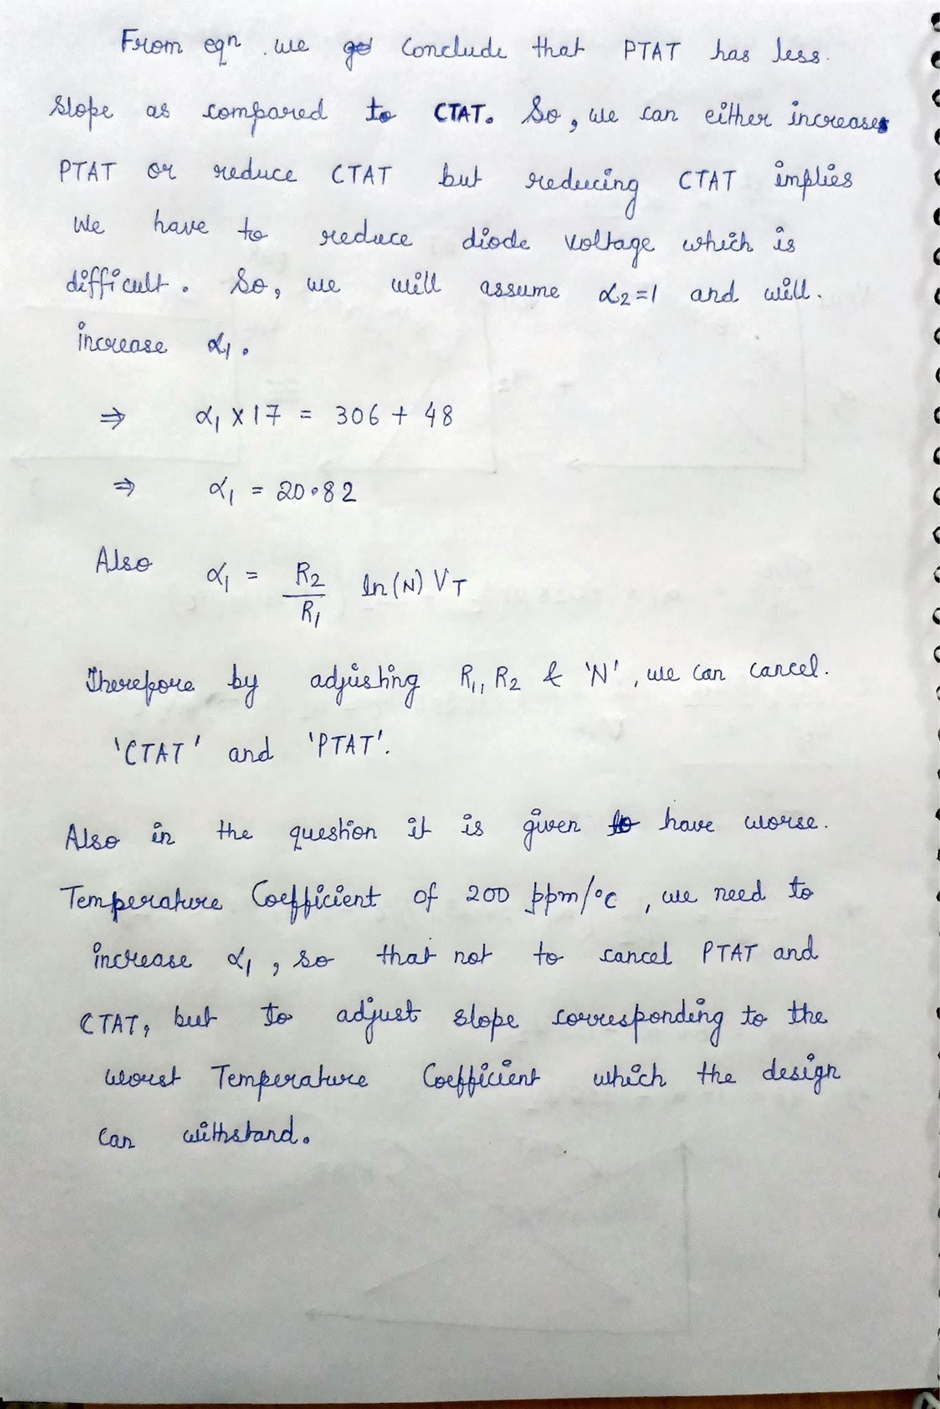 From eqn. we conclude that PTAT has less.
slope as compared to CTAT. So, we can either increases
PTAT or reduce CTAT but reducing CTAT implies
We have to reduce diode voltage which is
difficult. So, we will assume α₂=1 and will.
increase α₁.
⇒ α₁ × 17 = 306 + 48
⇒ α₁ = 20.82
Also α₁ = R₂/R₁ ln(N) VT
Therefore by adjusting R₁, R₂ & 'N', we can cancel.
'CTAT' and 'PTAT'.
Also in the question it is given to have worse.
Temperature Coefficient of 200 ppm/°C, we need to
increase α₁, so that not to cancel PTAT and
CTAT, but to adjust slope corresponding to the
worst Temperature Coefficient which the design
can withstand.